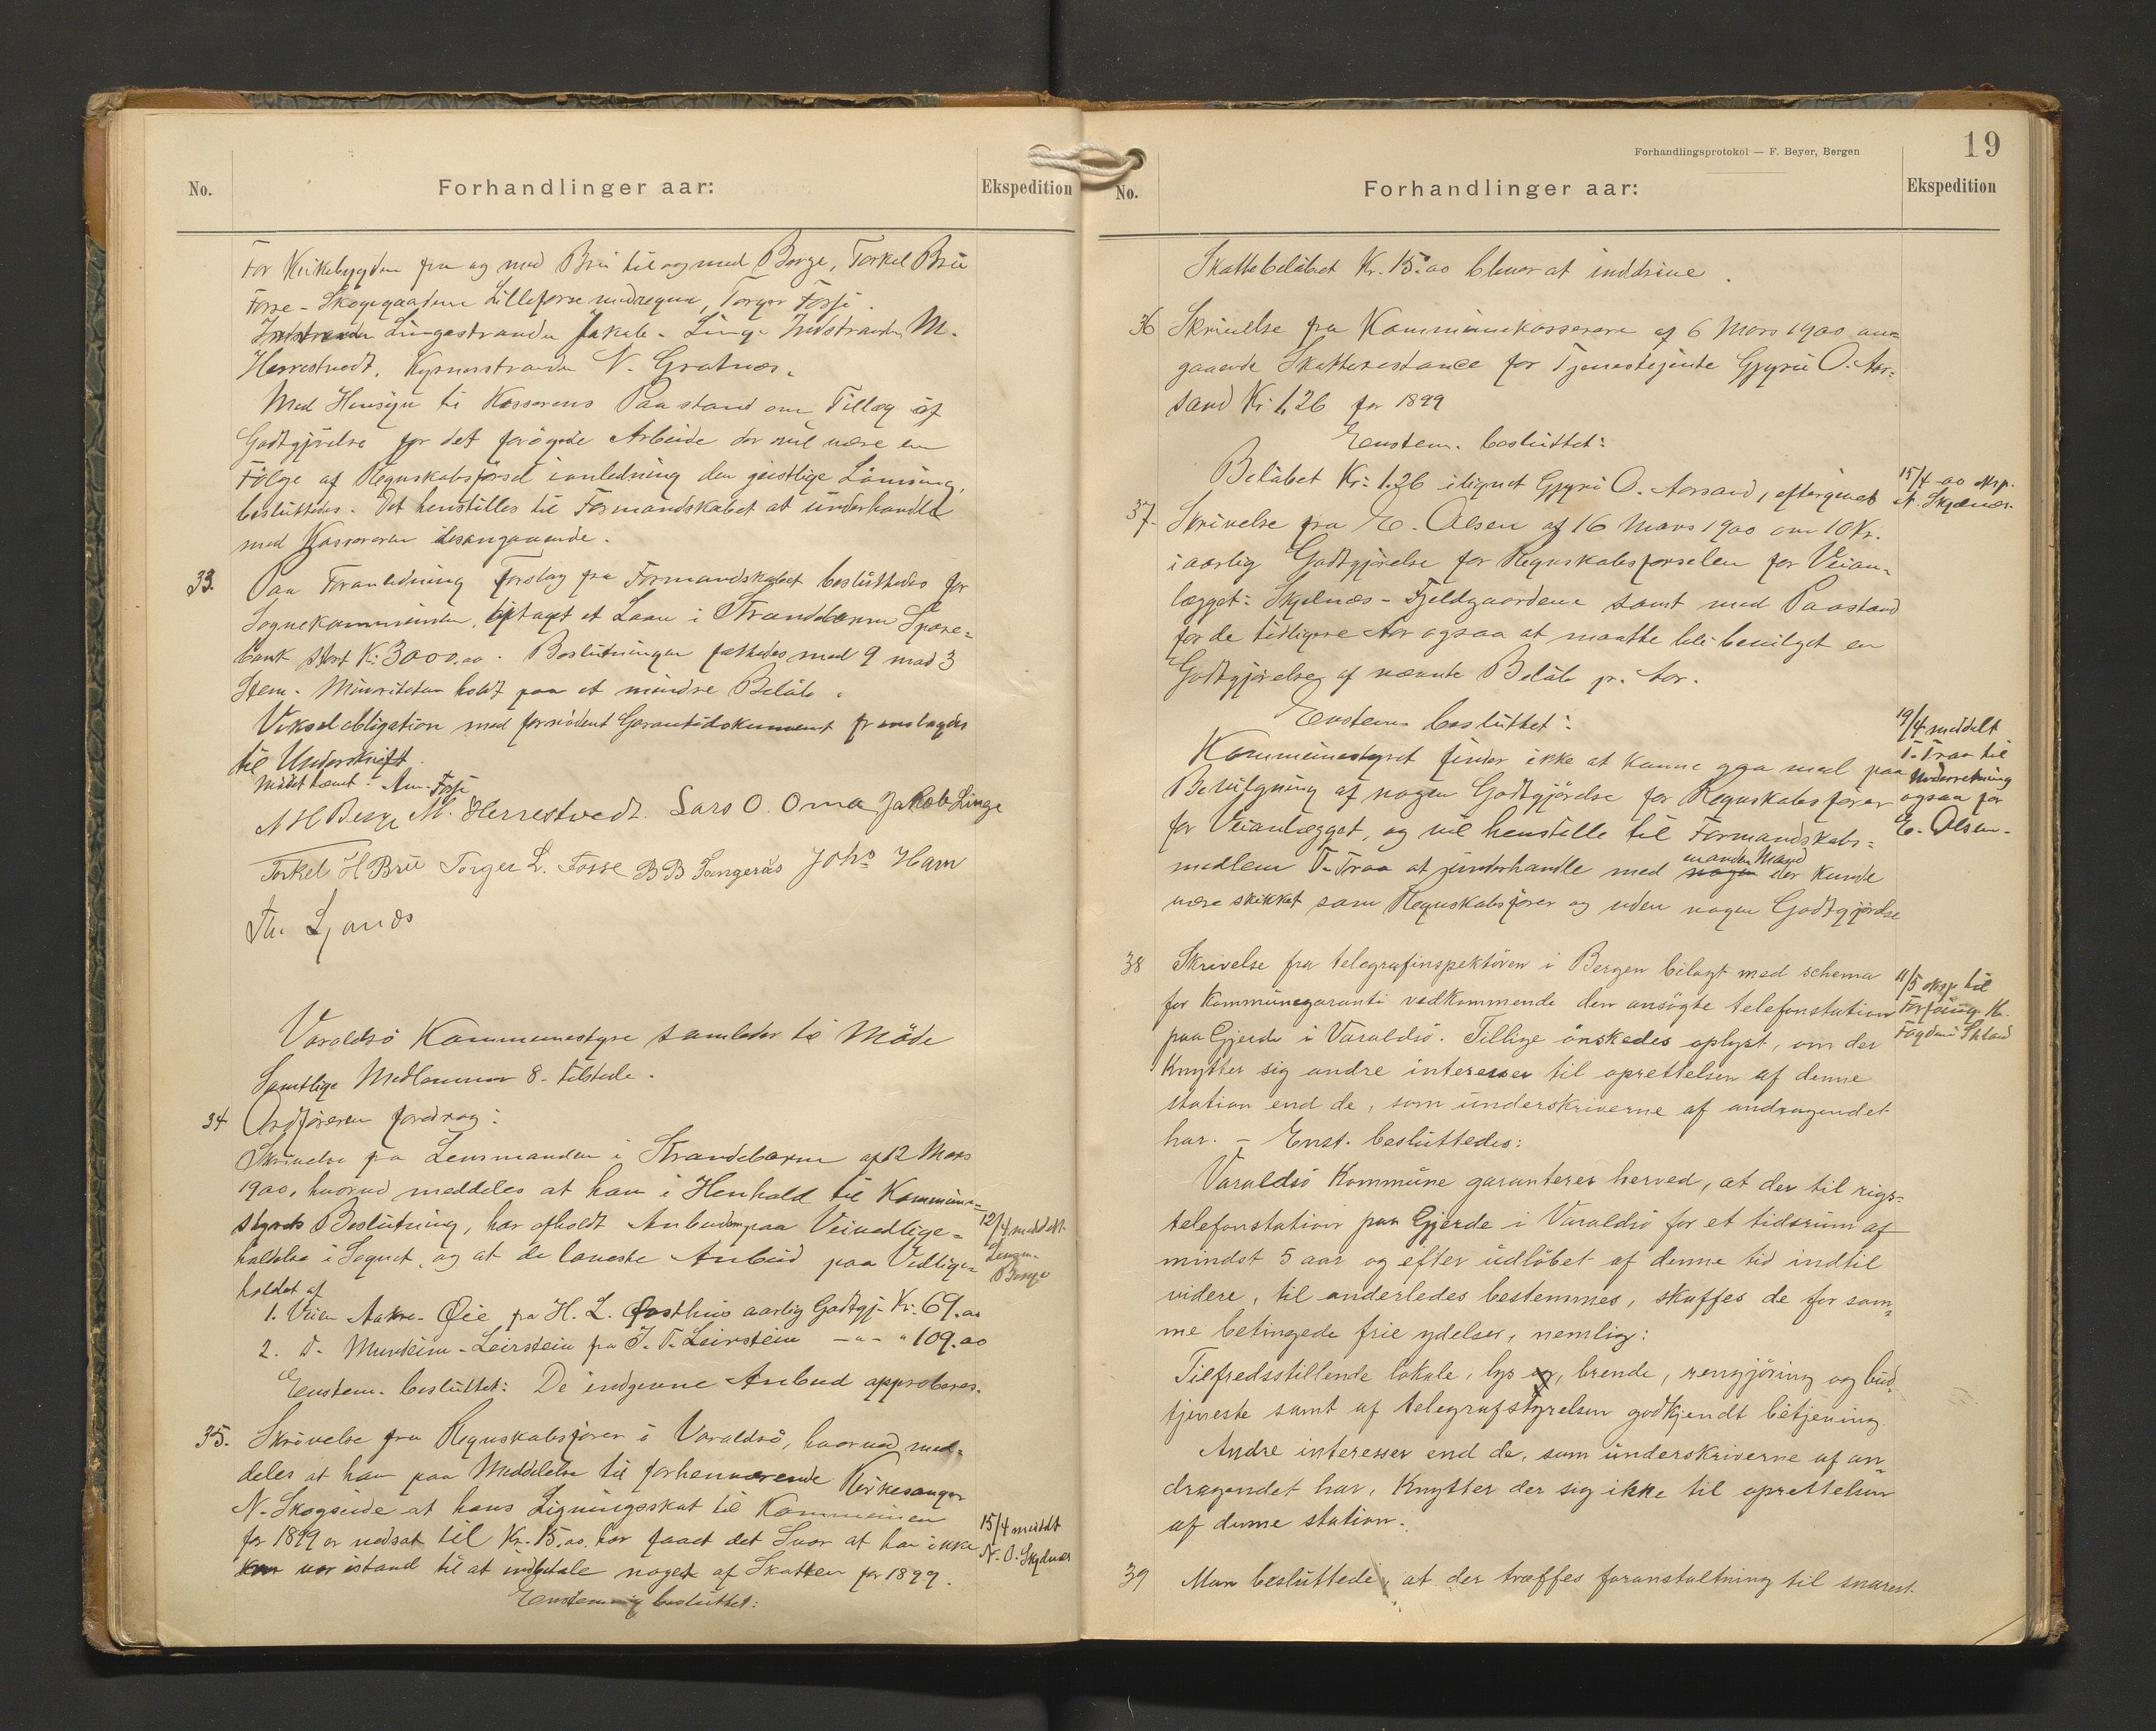 No.
Forhandlinger aar:
Ekspedition
For Kirkebygden fra og med Brii til og med Berge, Torkel Brii
Fosse - Skogegaardene Lillefosse medregnet, Torger Fosse.
Lingastranden Jakob Linge Indstranden M.
Herrestvedt, Kysnesstranden N. Gratnæs.
Med Hensyn til Kassererens Paastand om Tillæg af
Godtgjörelse for det forögede Arbeide der vil være en
Fölge af Regnskabsförsel ianledning den geistlige Lönning,
besluttedes. Det henstilles til Formandskabet at underhandle
med Kassereren desangaaende.
33. Paa Foranledning Forslag fra Formandskabet besluttedes for
Sognekommunen optaget et Laan i Strandebarm Spare=
bank stort Kr. 3000.00. Beslutningen fattedes med 9 mod 3
Stem. Minoriteten holdt paa et mindre Belöb.
Vekselobligation med fornödent Garantidokument fremlagdes
til Underskrift.
Mödet hævet. Am. Fosse
N H Berge M. Herrestvedt. Lars O. Oma Jakob Linge
Torkel H Brii Torger L. Fosse B B Tangerås Johs Ham
Th. Ljonæs
Varaldsö Kommunestyre samledes til Möde
Samtlige Medlemmer 8. tilstede.
34 Ordföreren foredrog:
Skrivelse fra Lensmanden i Strandebarm af 12 Mars
1900, hvorved meddeles at han i Henhold til Kommune=
styrets Beslutning, har afholdt Anbud paa Veivedlige=
holdelse i Sognet, og at de laveste Anbud paa Vedlige=
holdet af
12/4 meddelt
Lensm.
Berge
1. Veien Aakre - Øie fra H. L. Østhus aarlig Godtgj. Kr. 69.00
2. D. Mundeim - Leirstein fra J. T. Leirstein - " - " 109.00
Enstem. besluttet: De indgivne Anbud approberes.
35. Skrivelse fra Regnskabsförer i Varaldsö, hvorved med=
deles at han paa Meddelelse til forhenværende Kirkesanger
N. Skogseide at hans Ligningsskat til Kommunen
for 1899 er nedsat til Kr. 15.00, har faaet det Svar at han ikke
var istand til at indbetale noget af Skatten for 1899.
15/4 meddt
N. O. Skjelnæs
Enstemmig besluttet:
Forhandlingsprotokol — F. Beyer, Bergen
19
No.
Forhandlinger aar:
Ekspedition
Skattebelöbet Kr. 15.00 bliver at inddrive.
36 Skrivelse fra Kommunekassereren af 6 Mars 1900 an=
gaaende Skatterestance for Tjenestejente Gjyri O. Aar=
sand Kr. 1,26 for 1899
Enstem. besluttet:
Belöbet Kr. 1.26 ilignet Gjyri O. Aarsand, eftergives
15/4 00 eksp.
N. Skjelnæs
37. Skrivelse fra E. Olsen af 16 Mars 1900 om 10 Kr.
i aarlig Godtgjörelse for Regnskabsförselen for Veian=
lægget: Skjelnæs - Fjeldgaardene samt med Paastand
for de tidligere Aar ogsaa at maatte bli bevilget en
Godtgjörelse af nævnte Belöb pr. Aar.
Enstem besluttet:
Kommunestyret finder ikke at kunne gaa med paa
Bevilgning af nogen Godtgjörelse for Regnskabsförer
for Veianlægget, og vil henstille til Formandskabs=
medlem T. Traa at underhandle med nogen anden Mand der kunde
være skikket som Regnskabsförer og uden nogen Godtgjörelse
19/4 meddelt
T. Traa til
Underretning
ogsaa for
E. Olsen.
38 Skrivelse fra telegrafinspektören i Bergen bilagt med schema
for Kommunegaranti vedkommende den ansögte telefonstation
paa Gjerde i Varaldsö. Tillige önskedes oplyst, om der
Knytter sig andre interesser til oprettelsen af denne
station end de, som underskriverne af andragendet
har. - Enst. besluttedes:
11/5 eksp. til
Forföining Hr.
Fogden i Shland
Varaldsö Kommune garanterer herved, at der til rigs=
telefonstation paa Gjerde i Varaldsö for et tidsrum af
mindst 5 aar og efter udlöbet af denne tid indtil
videre, til anderledes bestemmes, skaffes de for sam=
me betingede frie ydelser, nemlig:
Tilfredsstillende lokale, lys og, brende, rengjöring og bud=
tjeneste samt af telegrafstyrelsen godkjendt betjening.
Andre interesser end de, som underskriverne af an=
dragendet har, Knytter der sig ikke til oprettelsen
af denne station.
39 Man besluttede, at der træffes foranstaltning til snarest